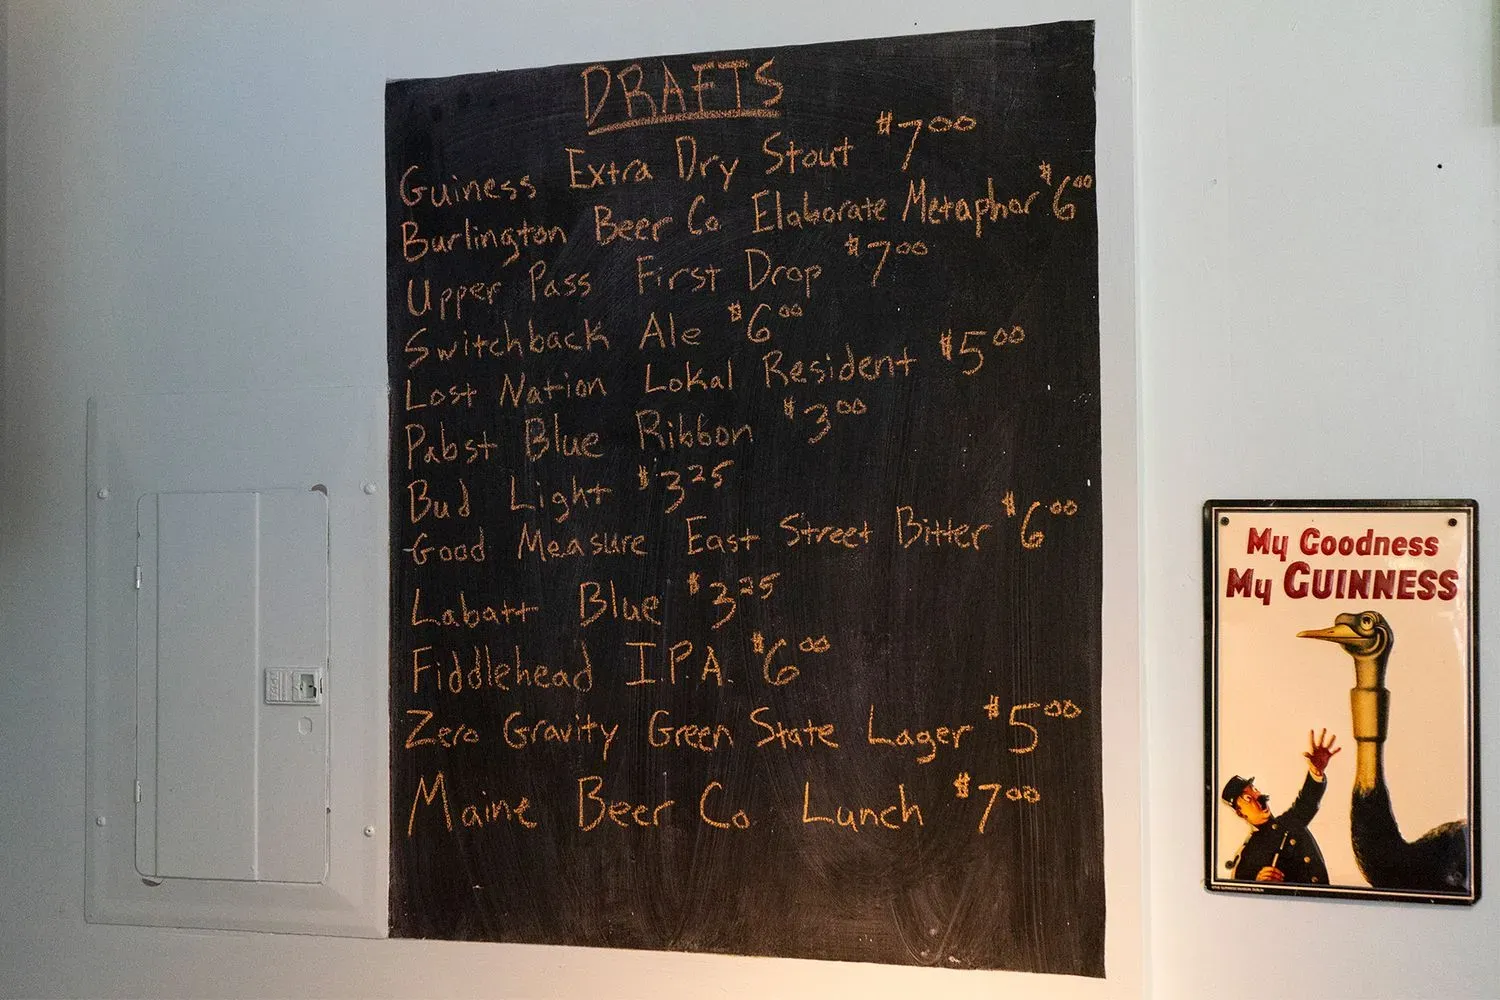 DRAFTS
Guiness Extra Dry Stout $7.00
Burlington Beer Co Elaborate Metaphor $6.00
Upper Pass First Drop $7.00
Switchback Ale $6.00
Lost Nation Lokal Resident $5.00
Pabst Blue Ribbon $3.00
Bud Light $3.25
Good Measure East Street Bitter $6.00
Labatt Blue $3.25
Fiddlehead I.P.A. $6.00
Zero Gravity Green State Lager $5.00
Maine Beer Co. Lunch $7.00
My Goodness
My GUINNESS